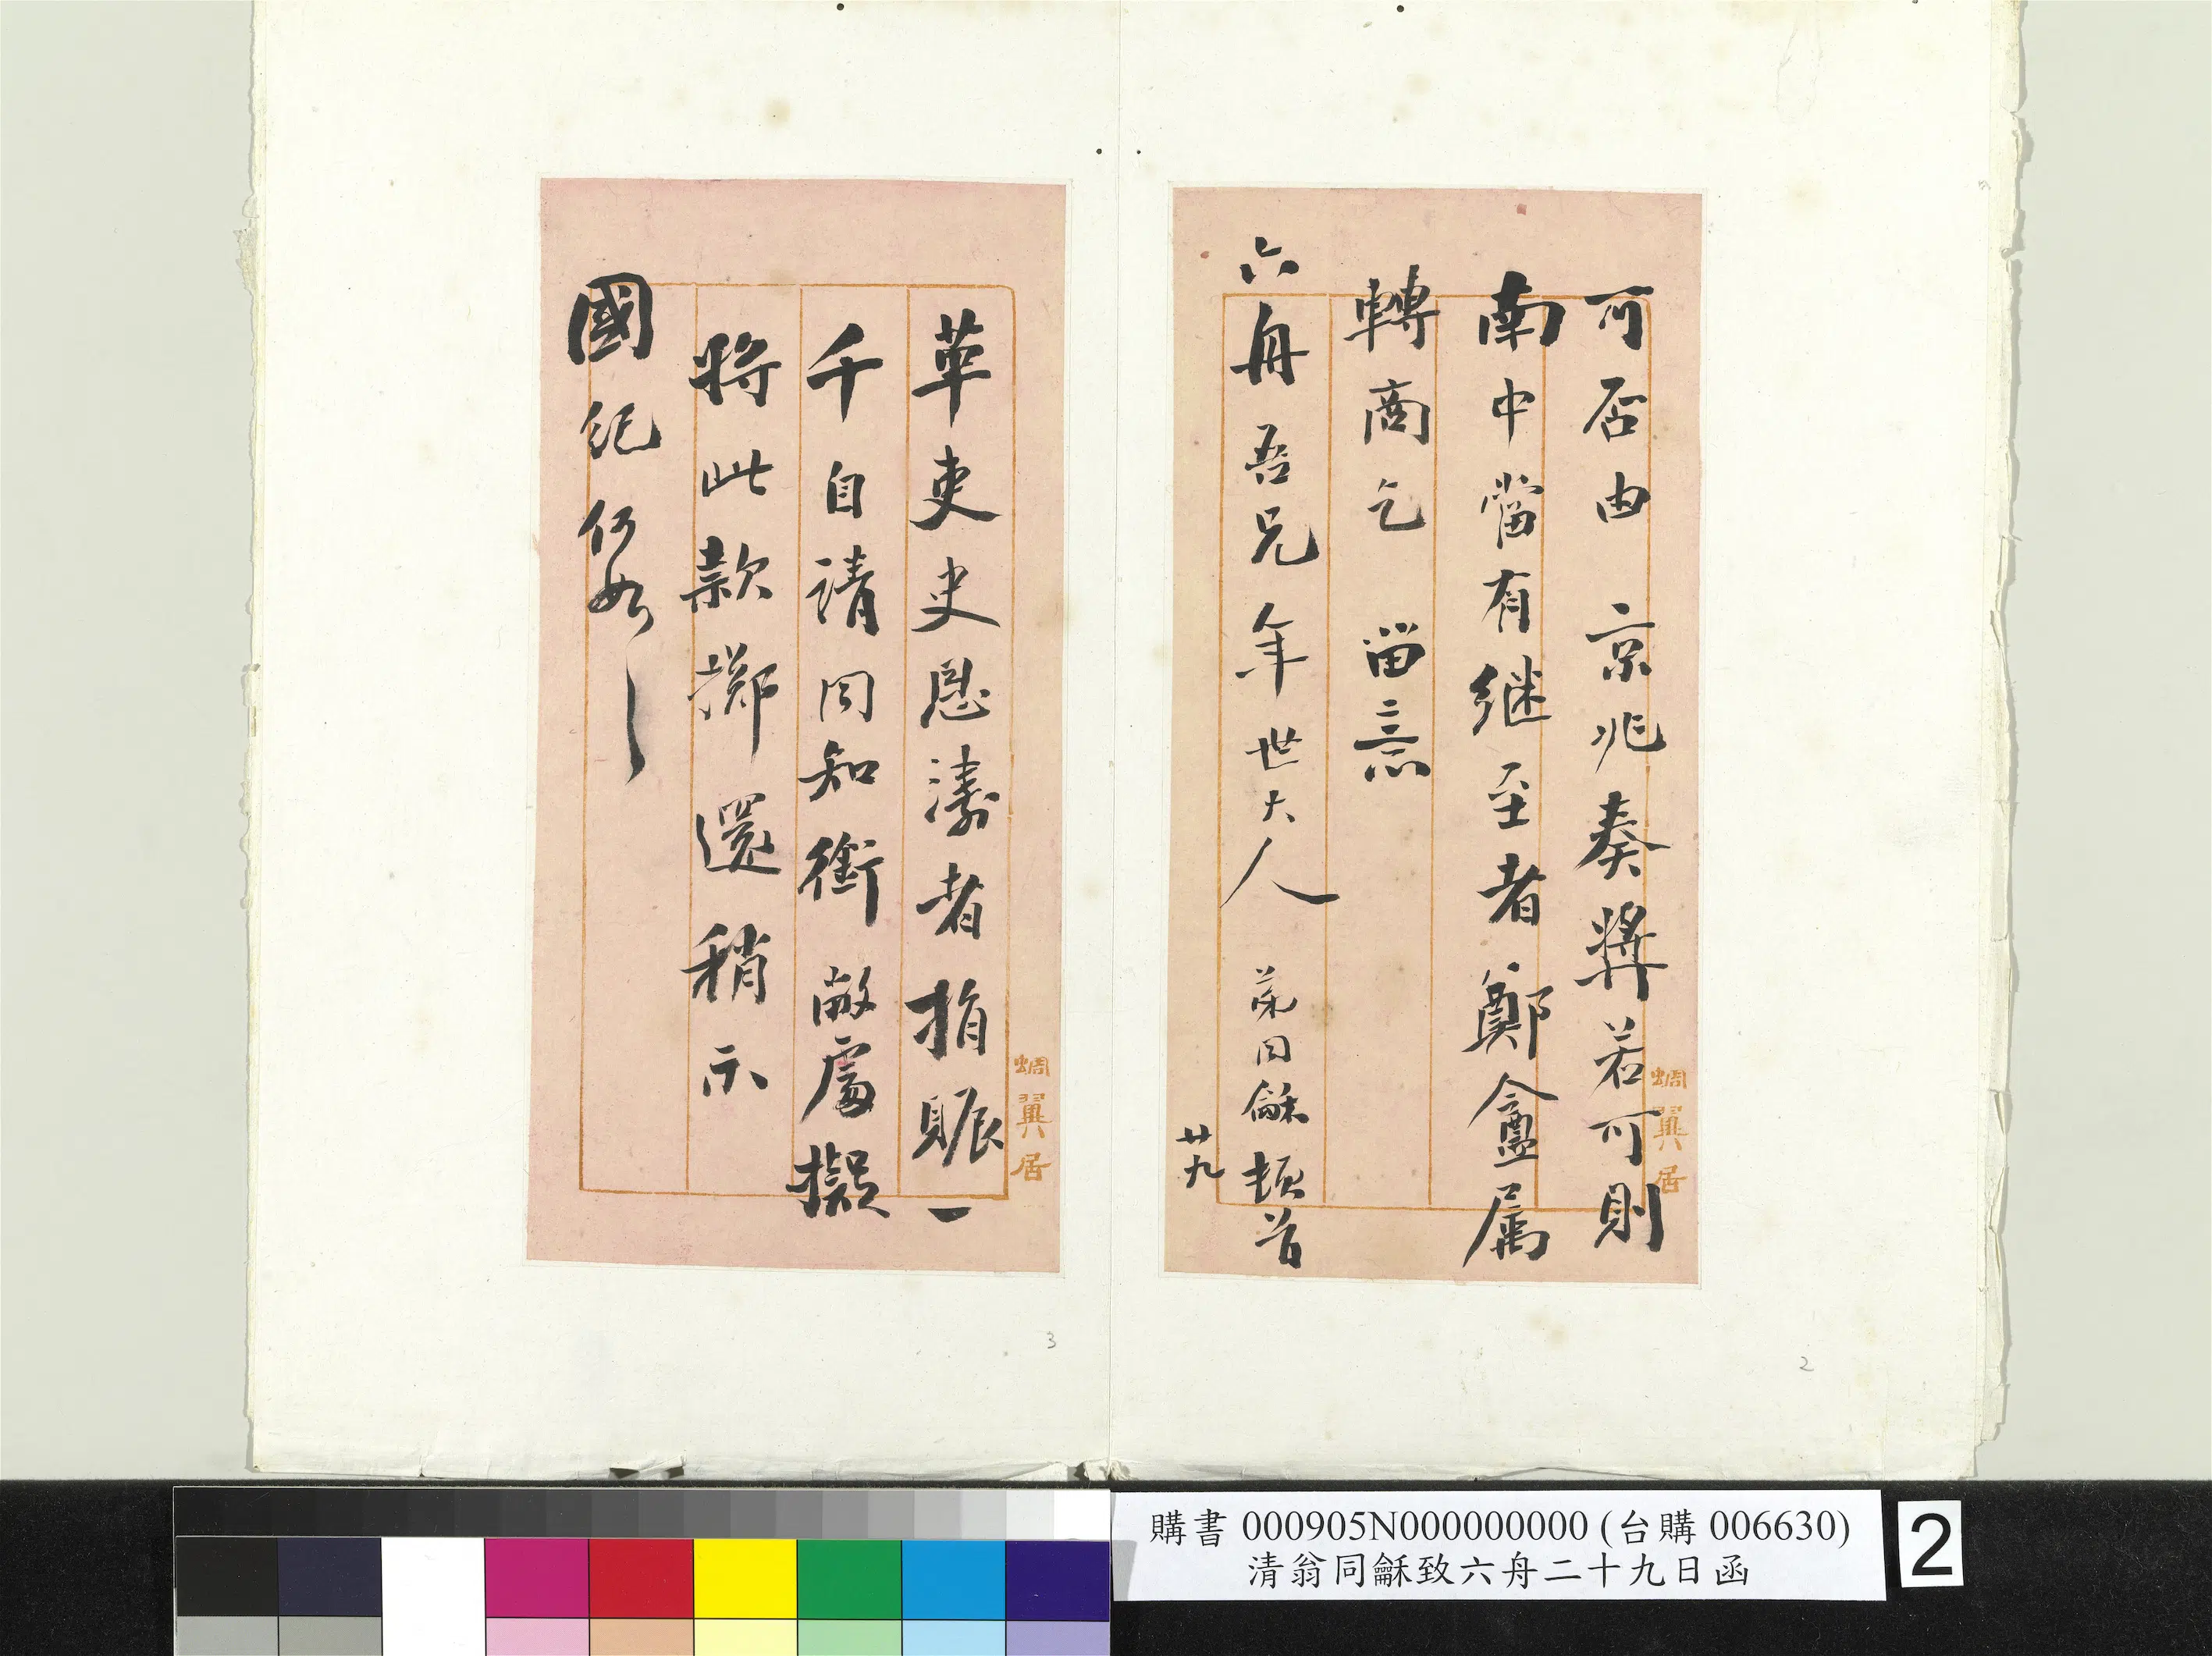 可否由 京兆奏獎若可則
南中當有继至者鄭盦属
轉商乞 畱意
六舟吾兄年世大人 弟同龢頓首
廿九
蜩翼居
革吏史恩濤者捐賑一
千自請同知銜敝處擬
將此款擲還稍示
國紀何如
蜩翼居
3
2
購書 000905N000000000 (台購 006630)
清翁同龢致六舟二十九日函
2